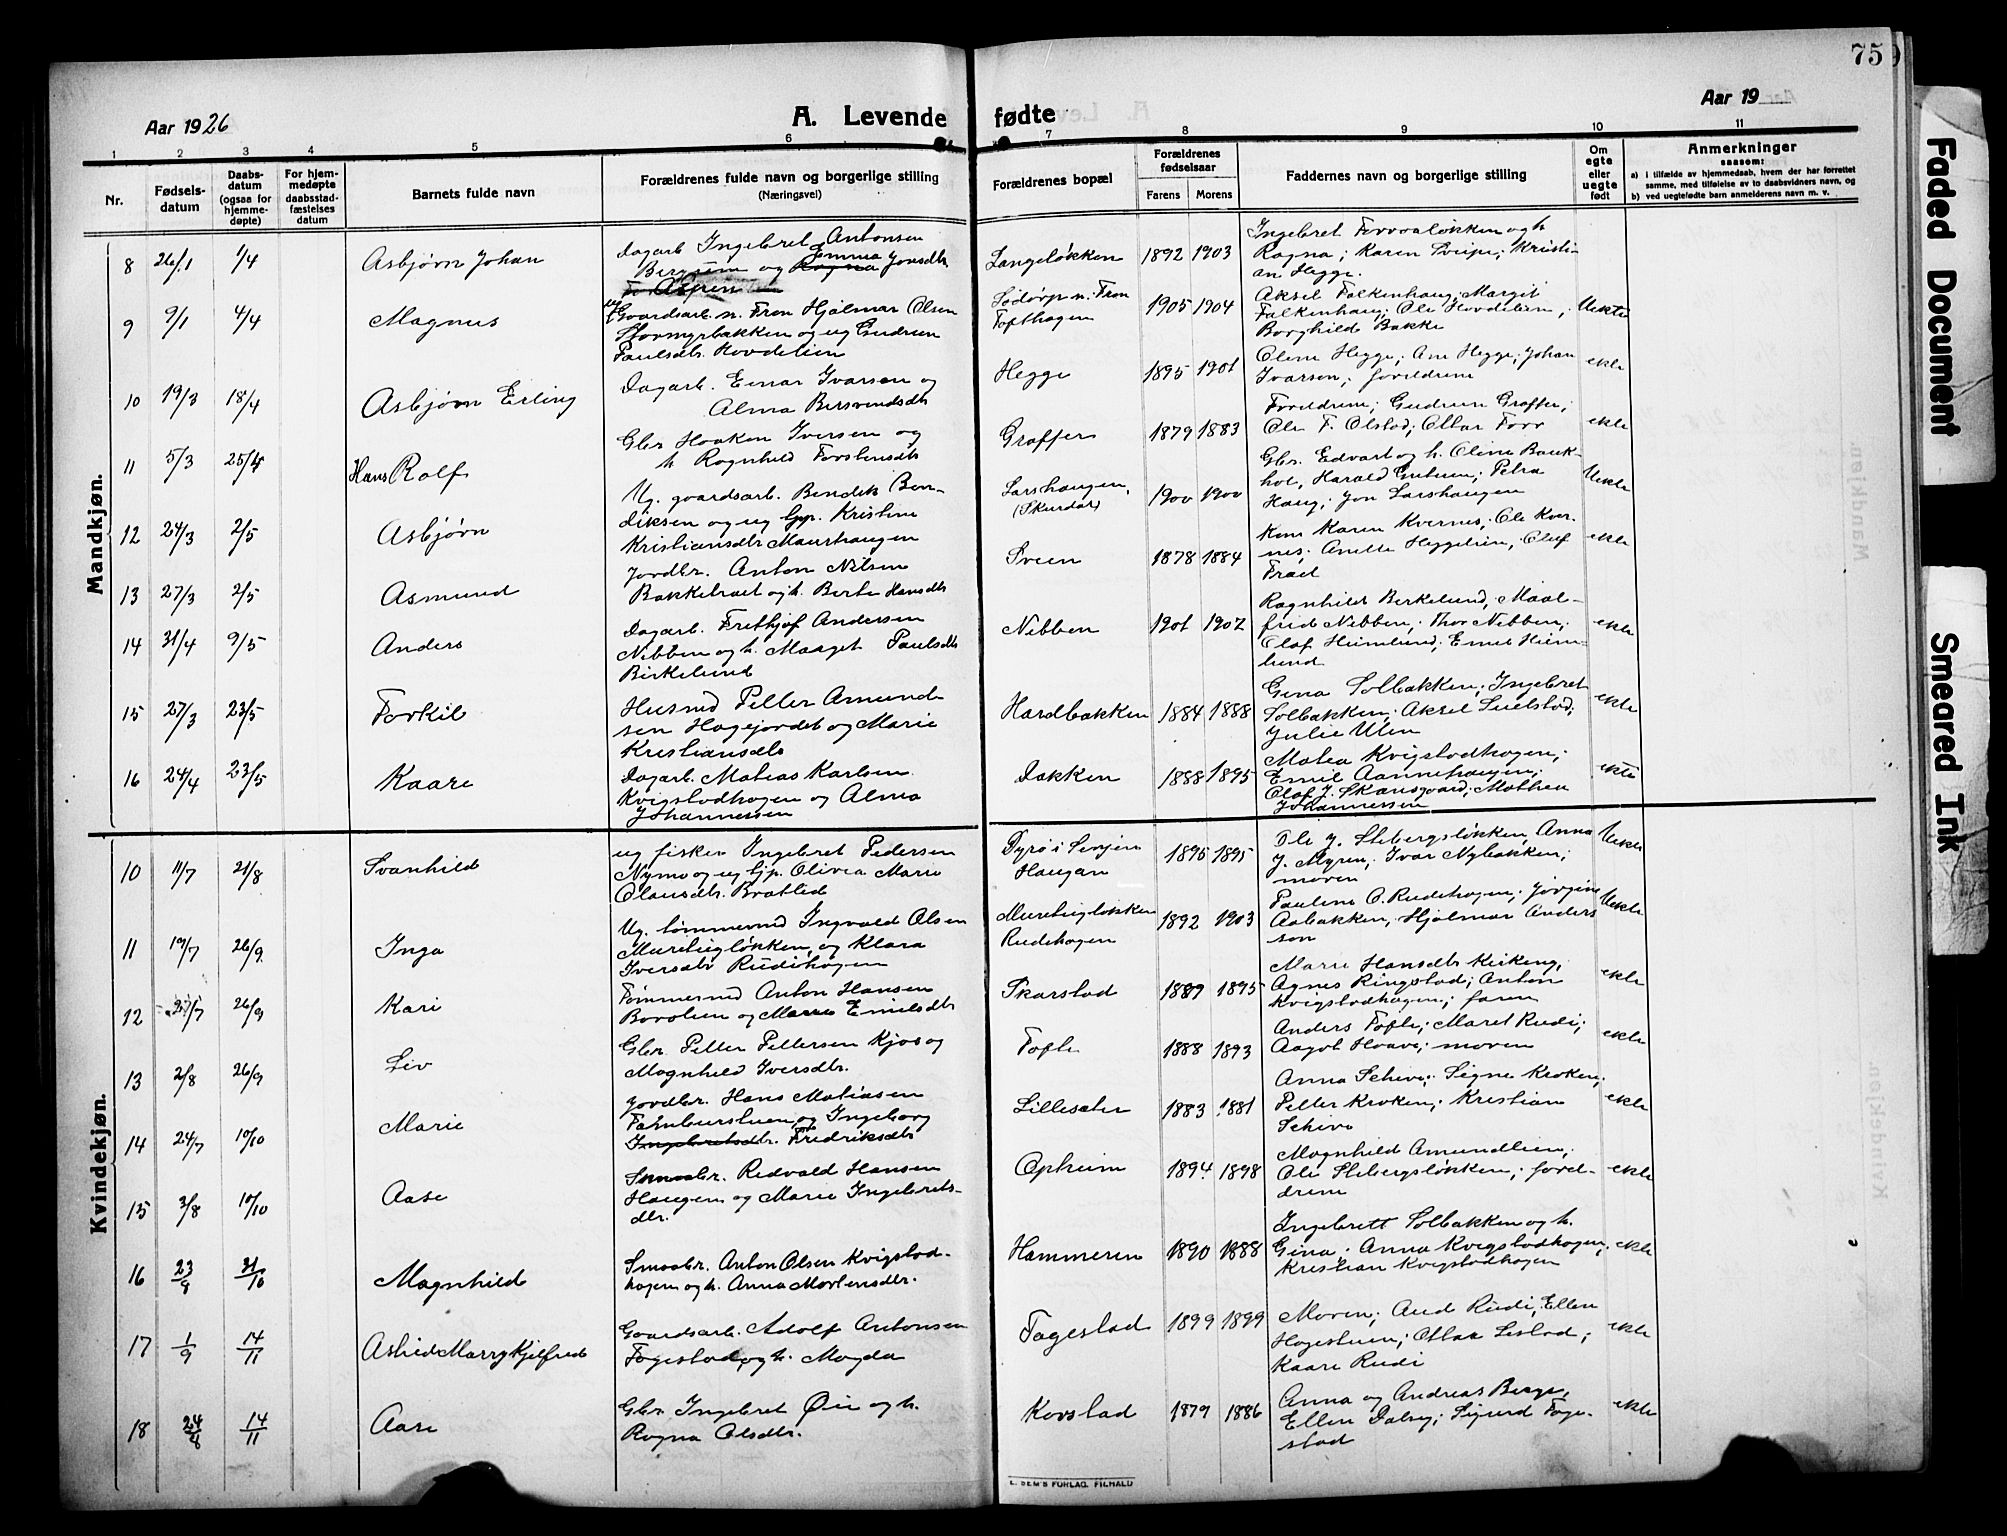 75
Aar 1926
A. Levende fødte
Aar 19
1 2 3 4 5 6 7 8 9 10 11
Nr.
Fødsels-
datum
Daabs-
datum
(ogsaa for
hjemme-
døpte)
For hjem-
medøpte
daabsstad-
fæstelses
datum
Barnets fulde navn
Forældrenes fulde navn og borgerlige stilling
(Næringsvei)
Forældrenes bopæl
Forældrenes
fødselsaar
Farens Morens
Faddernes navn og borgerlige stilling
Om
egte
eller
uegte
født
Anmerkninger
saasom:
a) i tilfælde av hjemmedaab, hvem der har forrettet
samme, med tilføielse av to daabsvidners navn, og
b) ved uegtefødte barn anmelderens navn m. v.
Mandkjøn.
8 26/1 1/4 Asbjørn Johan
Dagarb. Ingebret Antonsen
Bergum og Ragna Emma Jonsdtr
Langeløkken 1892 1903
Ragna; Karen Sveipe; Kristi-
an Hegge.
9 9/1 4/4 Magnus
Gaardsarb. n. Fron Hjalmar Olsen
og ug Gudrun
Paulsdtr. Hovdelien
Sødorp n. Fron
Tofthagen
1905 1904
Aksel Falkenhaug; Margit
Falkenhaug; Ole Hovdelien;
Borghild Bakke
Uekte
10 19/3 18/4 Asbjørn Erling
Dagarb. Einar Ivarsen og
Alma
Hegge 1895 1901
Oline Hegge; Ane Hegge; Johan
Ivarsen; foreldrene
ekte
11 5/3 25/4 Hans Rolf
Gbr. Haaken Iversen og
h. Ragnhild Torstensdtr
Graffer 1879 1883
Foreldrene; Gudrun Graffer;
Ole F. Olstad; Ottar Forr
ekte
12 24/3 2/5 Asbjørn
Ug. gaardsarb. Bendik Ben-
diksen og ug Gp. Kristine
Kristiansdtr Maurhaugen
Larshaugen,
(Skurdal)
1900 1900
Gbr. Edvart og h. Oline Bauk-
hol, Harald Grutuen; Petra
Haug; Jon Larshaugen
Uekte
13 27/3 2/5 Asmund
Jordbr. Anton Nilsen
Bakketraet og h. Berte Hansdtr
Sveen 1878 1884
Kone Karen Kvernes; Ole Kver-
nes; Anette Heggelien; Olaf
Træet
ekte
14 31/4 9/5 Anders
Dagarb. Frithjof Andersen
Nibben og h. Maaget Paulsdtr
Birkelund
Nibben 1901 1902
Ragnhild Birkelund; Maal-
frid Nibben; Thor Nibben;
Olaf Heimlund; Emil Heim-
lund
ekte
15 27/3 23/5 Torkil
Husmd Petter Amund-
sen Hagejordet og Marie
Kristiansdtr
Hardbakken 1884 1888
Gina Solbakken; Ingebret
Solbakken; Aksel Suelstad;
Julie Ulen
ekte
16 24/4 23/5 Kaare
Dagarb. Matias Karlsen
Kvigstadhagen og Alma
Johannessen
Dokken 1888 1895
Matea Kvigstadhagen;
Emil Aannehaugen;
Olaf J. Skansgaard; Mathea
Johannessen
ekte
Kvindekjøn.
10 11/7 21/8 Svanhild
ug fisker Ingebret Pedersen
Nymo og ug Gp. Olivia Marie
Olausdtr. Bratlid
Dyrø i Senjen
Haugan
1895 1895
Ole J. Stebergsløkken, Anna
J. Myren; Ivar Nybakken;
moren
Uekte
11 19/7 26/9 Inga
Ug. tømmermd Ingvald Olsen
Muretuigløkken og Klara
Iversdtr Rudihagen
Muretuigløkken
Rudehagen
1892 1903
Pauline O. Rudehagen; Jørgine
Aabakken, Hjalmar Anders
son
Uekte
12 27/7 26/9 Kari
Tømmermd Anton Hansen
og Marie Emilsdtr
Skarstad 1889 1895
Marie Hansdtr Kirkeng;
Agnes Ringstad; Anton
Kvigstadhagen; faren
ekte
13 2/8 26/9 Liv
Gbr. Petter Pettersen Kjos og
Magnhild Iversdtr.
Tofte 1888 1893
Anders Tofte; Maret Rudi;
Aagot Haave; moren
ekte
14 24/7 10/10 Marie
Jordbr. Hans Matiasen
og Ingeborg
Ingebretsdtr. Fredriksdtr
Lillesæter 1883 1881
Anna Schive; Signe Kroken;
Petter Kroken; Kristian
Schive
ekte
15 3/8 10/10 Aase
Smaabr. Redvald Hansen
Haugen og Marie Ingebrets-
dtr.
Opheim 1894 1898
Magnhild Amundlien;
Ole Stebergsløkken; forel-
drene
ekte
16 23/8 31/10 Magnhild
Smaabr. Anton Olsen Kvigstad-
hagen og h. Anna Mortensdtr.
Hammeren 1890 1888
Ingebrett Solbakken og h.
Gina; Anna Kvigstadhagen;
Kristian Kvigstadhagen
ekte
17 1/9 14/11 Astrid Marry Kjelfrid
Gaardsarb. Adolf Antonsen
Fagestad og h. Magda
Fagestad 1899 1899
Moren; Aud Rudi; Ellen
Hagestuen; Ottar Listad;
Kaare Rudi
ekte
18 24/8 14/11 Aase
Gbr. Ingebret Øie og h.
Ragna Olsdtr.
Korstad 1879 1886
Anna og Andreas Berge,
Ellen Dalseg; Sigurd Fage-
stad
ekte
E. SEM'S FORLAG. FILHALD
Faded Document
Smeared Ink